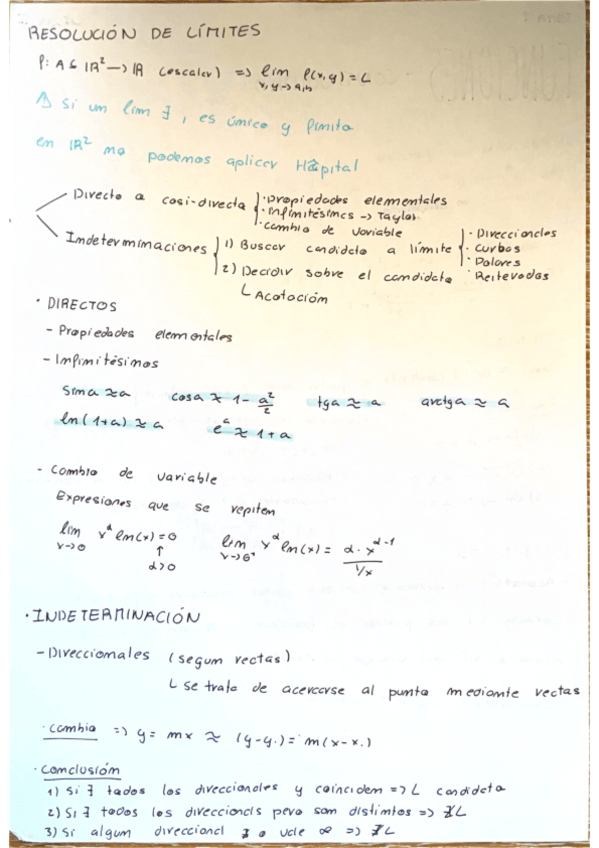 RESOLUCIÓN DE LÍMITES
f: A ⊆ IR² → IR (escalar) => lim f(x,y) = L
x,y → a,b
⚠ Si un lim ∃, es único y finito
en IR² no podemos aplicar Hôpital
Directo o casi-directa { · Propiedades elementales
· infinitésimos → Taylor
· cambio de variable
Indeterminaciones { 1) Buscar candidato a límite { · Direccionales
· curvas
· Polares
· Reiterados
2) Decidir sobre el candidato
└ Acotación
· DIRECTOS
- Propiedades elementales
- Infinitésimos
sin a ≈ a cos a ≈ 1 - a²/2 tg a ≈ a arctg a ≈ a
ln(1+a) ≈ a e^a ≈ 1+a
- Cambio de variable
Expresiones que se repiten
lim x^α ln(x) = 0 lim x^α ln(x) = α · x^(α-1) / 1/x
x→0 ↑ x→0⁺
α>0
· INDETERMINACIÓN
- Direccionales (según rectas)
└ se trata de acercarse al punto mediante rectas
· cambio => y = mx ≈ (y-y.) = m(x-x.)
· Conclusión
1) Si ∃ todos los direccionales y coinciden => L candidato
2) Si ∃ todos los direccionals pero son distintos => ∄L
3) Si algún direccional ∄ o vale ∞ => ∄L